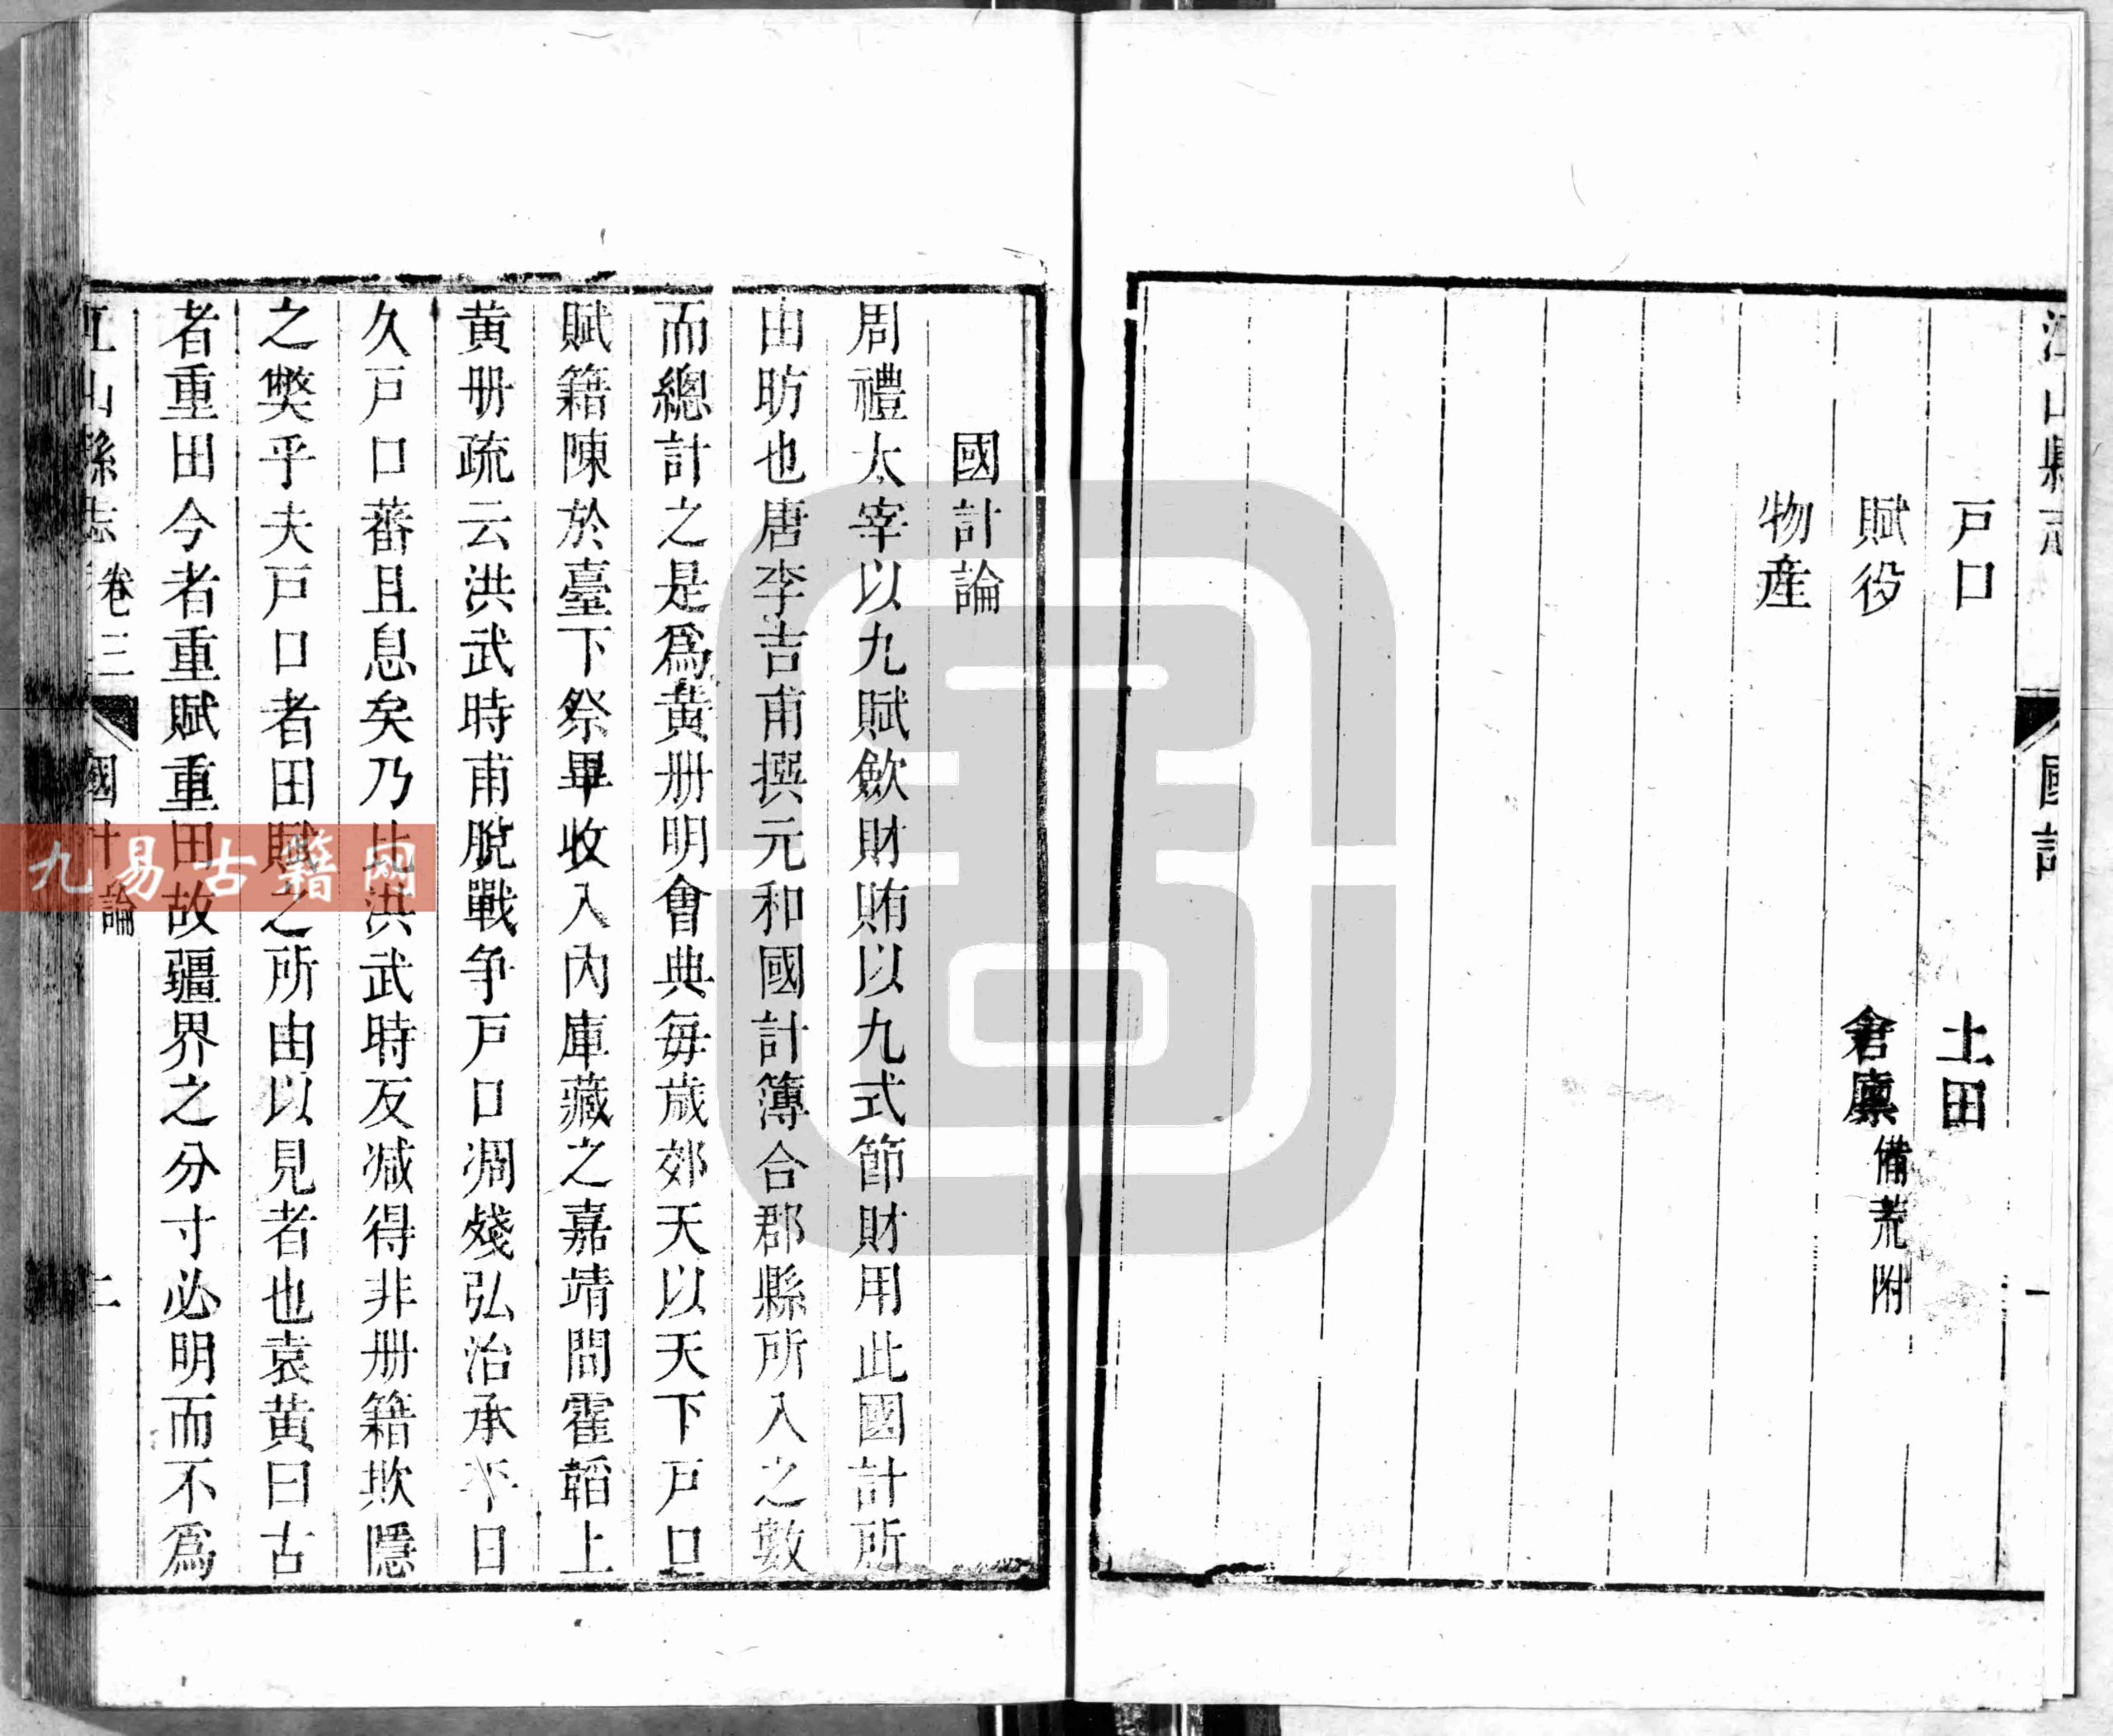 江山縣志
國計
一
戶口
土田
賦役
倉廩備荒附
物産
國計論
周禮太宰以九賦歛財賄以九式節財用此國計所
由昉也唐李吉甫撰元和國計簿合郡縣所入之數
而總計之是爲黃册明會典每歲郊天以天下戶口
賦籍陳於臺下祭畢收入內庫藏之嘉靖間霍韜上
黃册疏云洪武時甫脫戰争戶口凋殘弘治承平日
久戶口蕃且息矣乃比洪武時反减得非册籍欺隱
之獘乎夫戶口者田賦之所由以見者也袁黃曰古
者重田今者重賦重田故疆界之分寸必明而不爲
江山縣志
卷三
國計論
二
九易古籍网